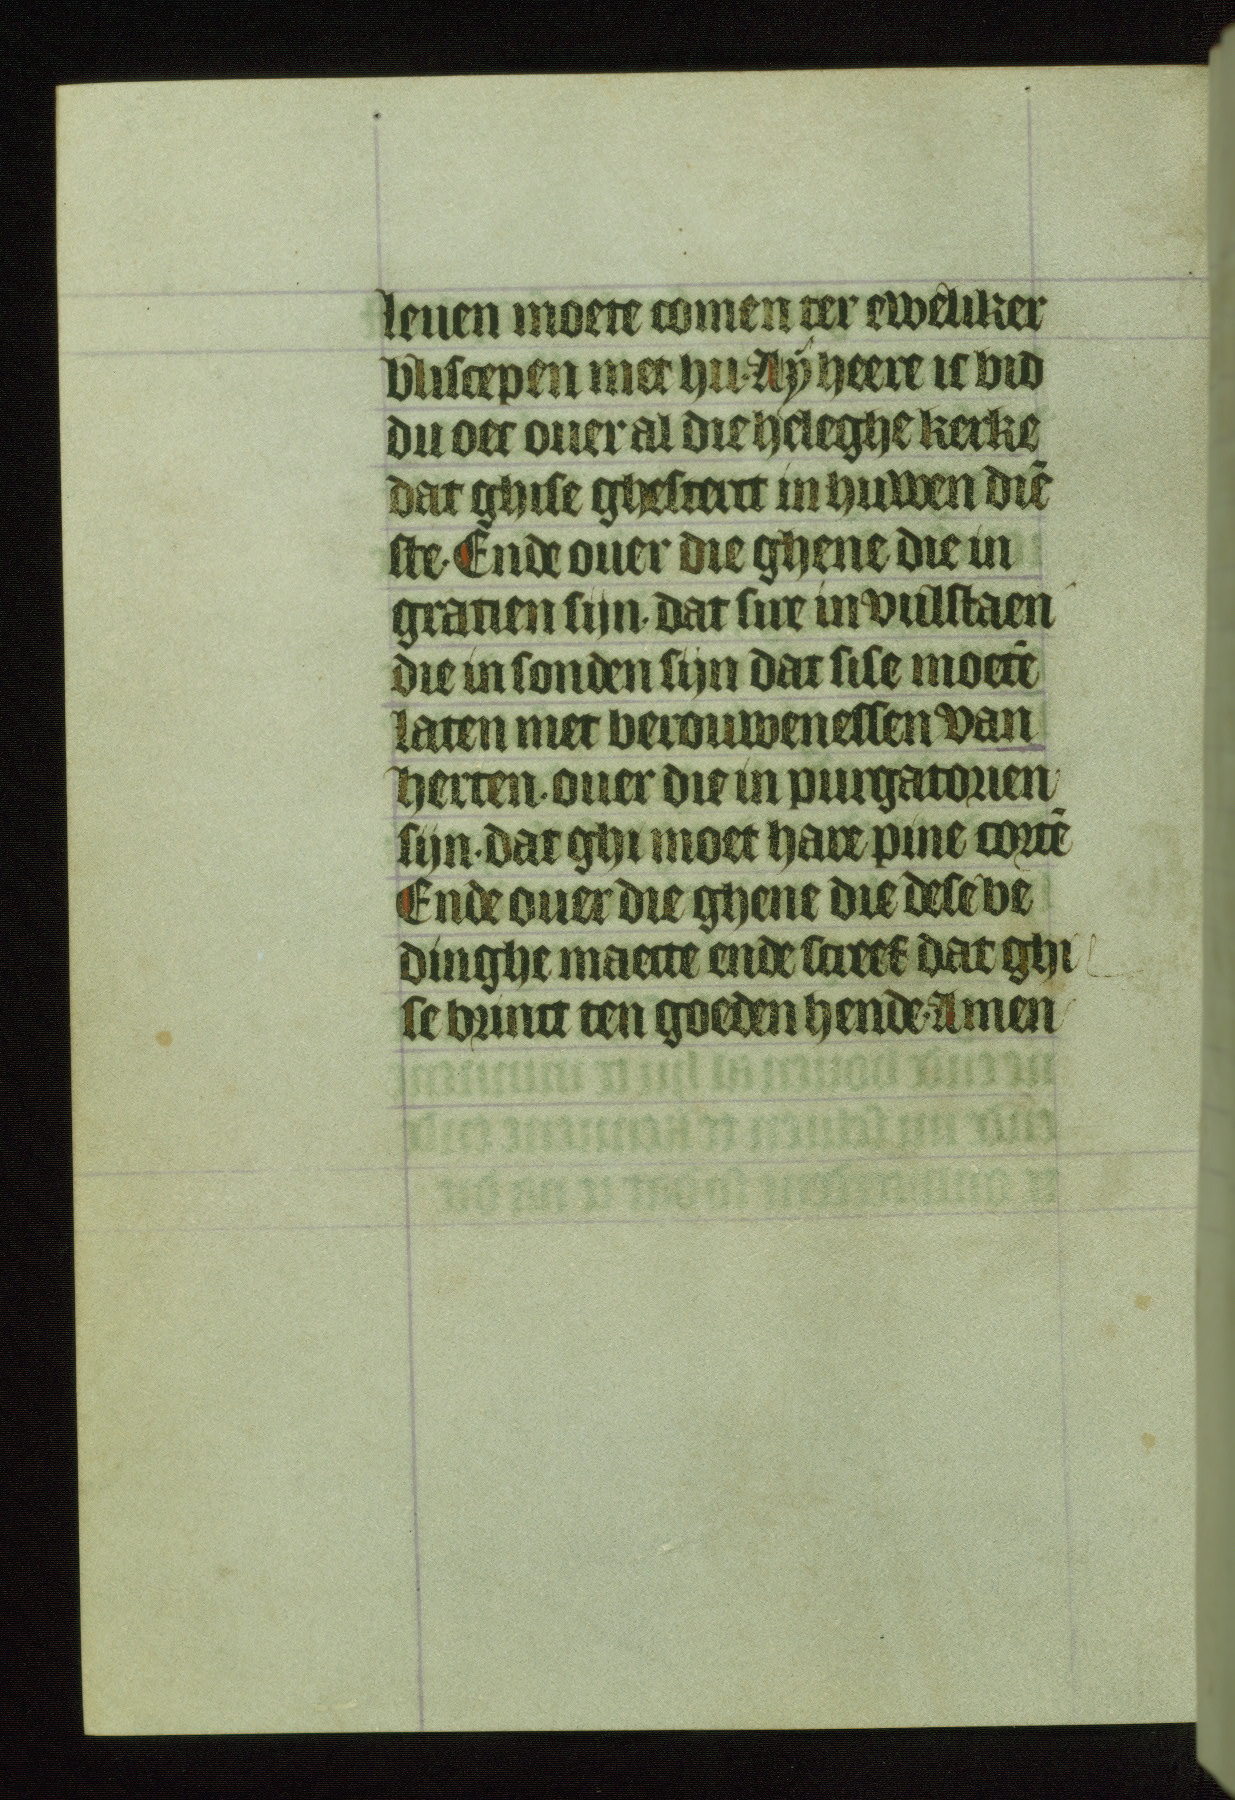 leuen moete comen ter eweliker
bliscepen met hu· Ay heere ic bid
du oec ouer al die heleghe kerke
dat ghise ghesterct in huwen diē
ste· Ende ouer die ghene die in
gratien sijn· dat sire in vulstaen
die in sonden sijn dat sise moetē
laten met berouwenessen van
herten· ouer die in purgatorien
sijn· dat ghi moet hare pine cortē
Ende ouer die ghene die dese be
dinghe maecte ende screef dat ghi
se brinct ten goeden hende· Amen